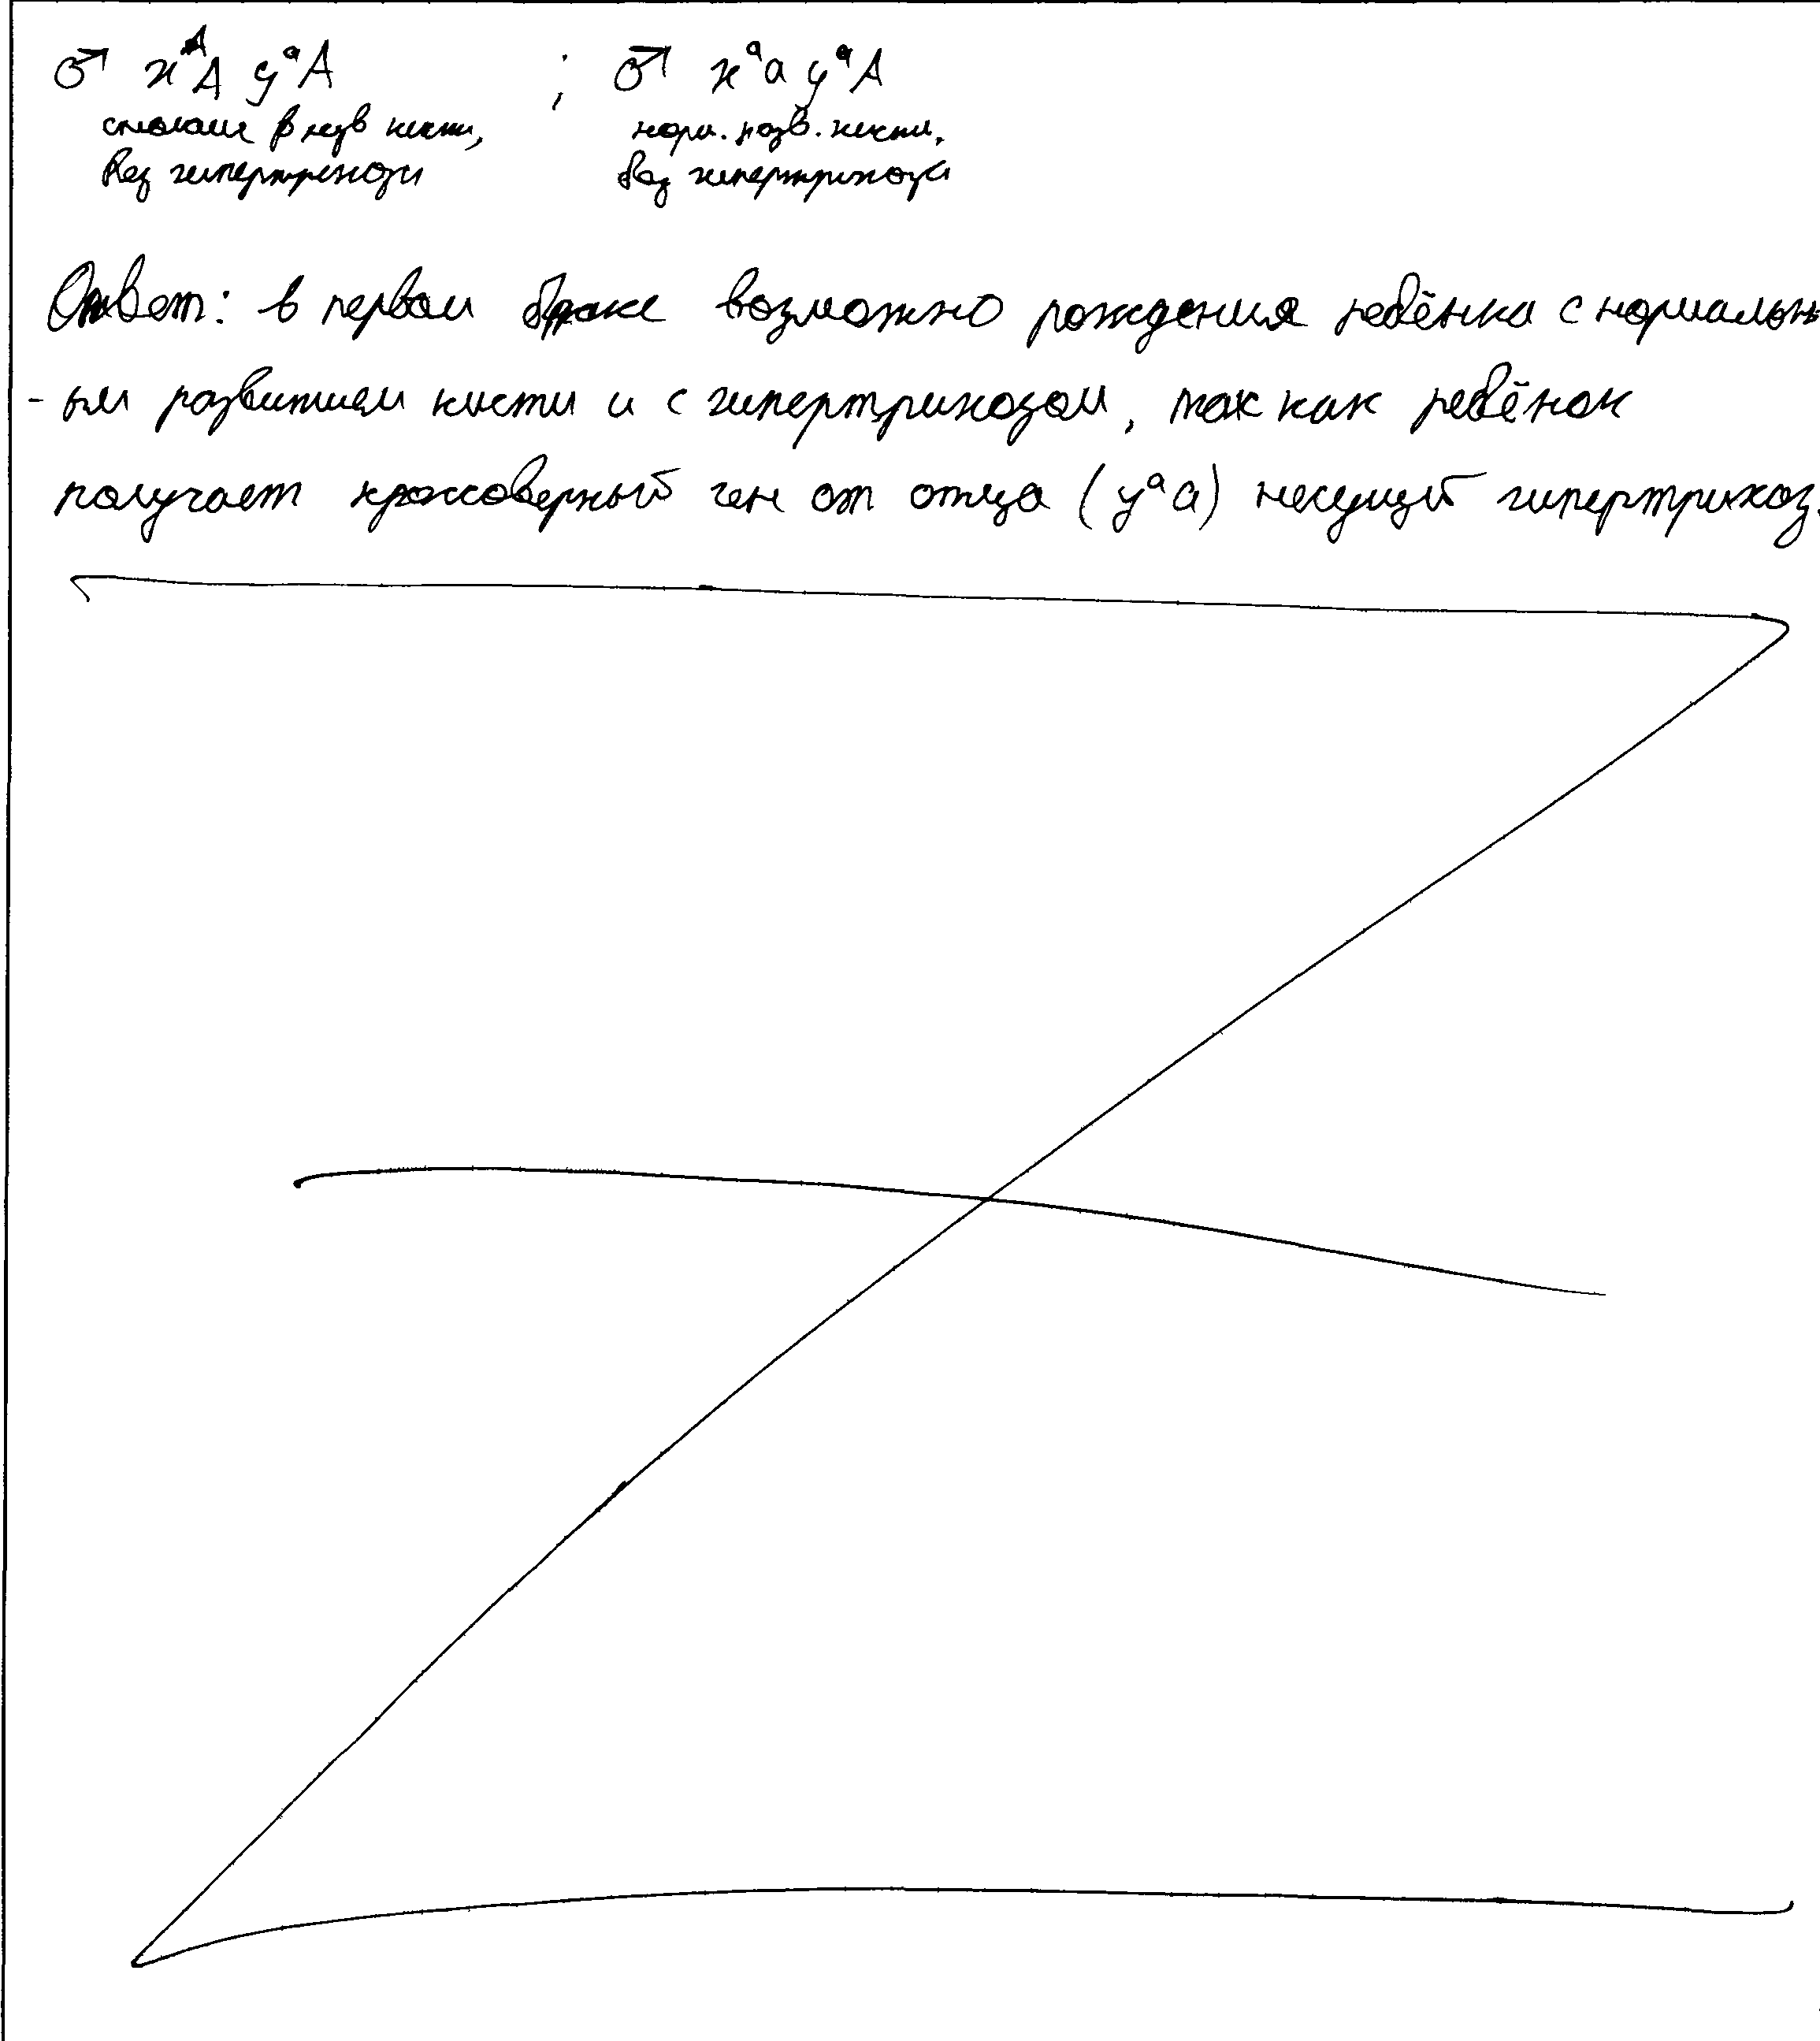 ♂ xᴬA yᵃA ; ♂ xᵃa yᵃA
кисти, норм. разв. кисти,
без гипертрихоза без гипертрихоза
Ответ: в первом браке возможно рождения ребёнка с нормальн
-ым развитием кисти и с гипертрихозом, так как ребёнок
получает кроссоверный ген от отца (yᵃa) несущий гипертрихоз.